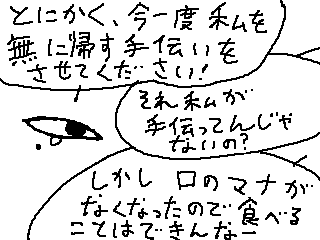 とにかく、今一度私を
無に帰す手伝いを
させてください!
それ私が
手伝ってんじゃ
ないの?
しかし 口のマナが
なくなったので食べる
ことはできんなー